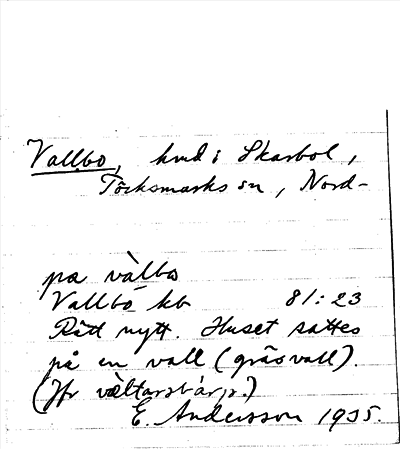 Vallbo, hmd i Skarbol,
Töcksmarks sn, Nord-
pa välbo
Vallbo kb 81:23
Rätt nytt. Huset sattes
på en vall (gräsvall).
(Jfr
E. Andersson 1935.